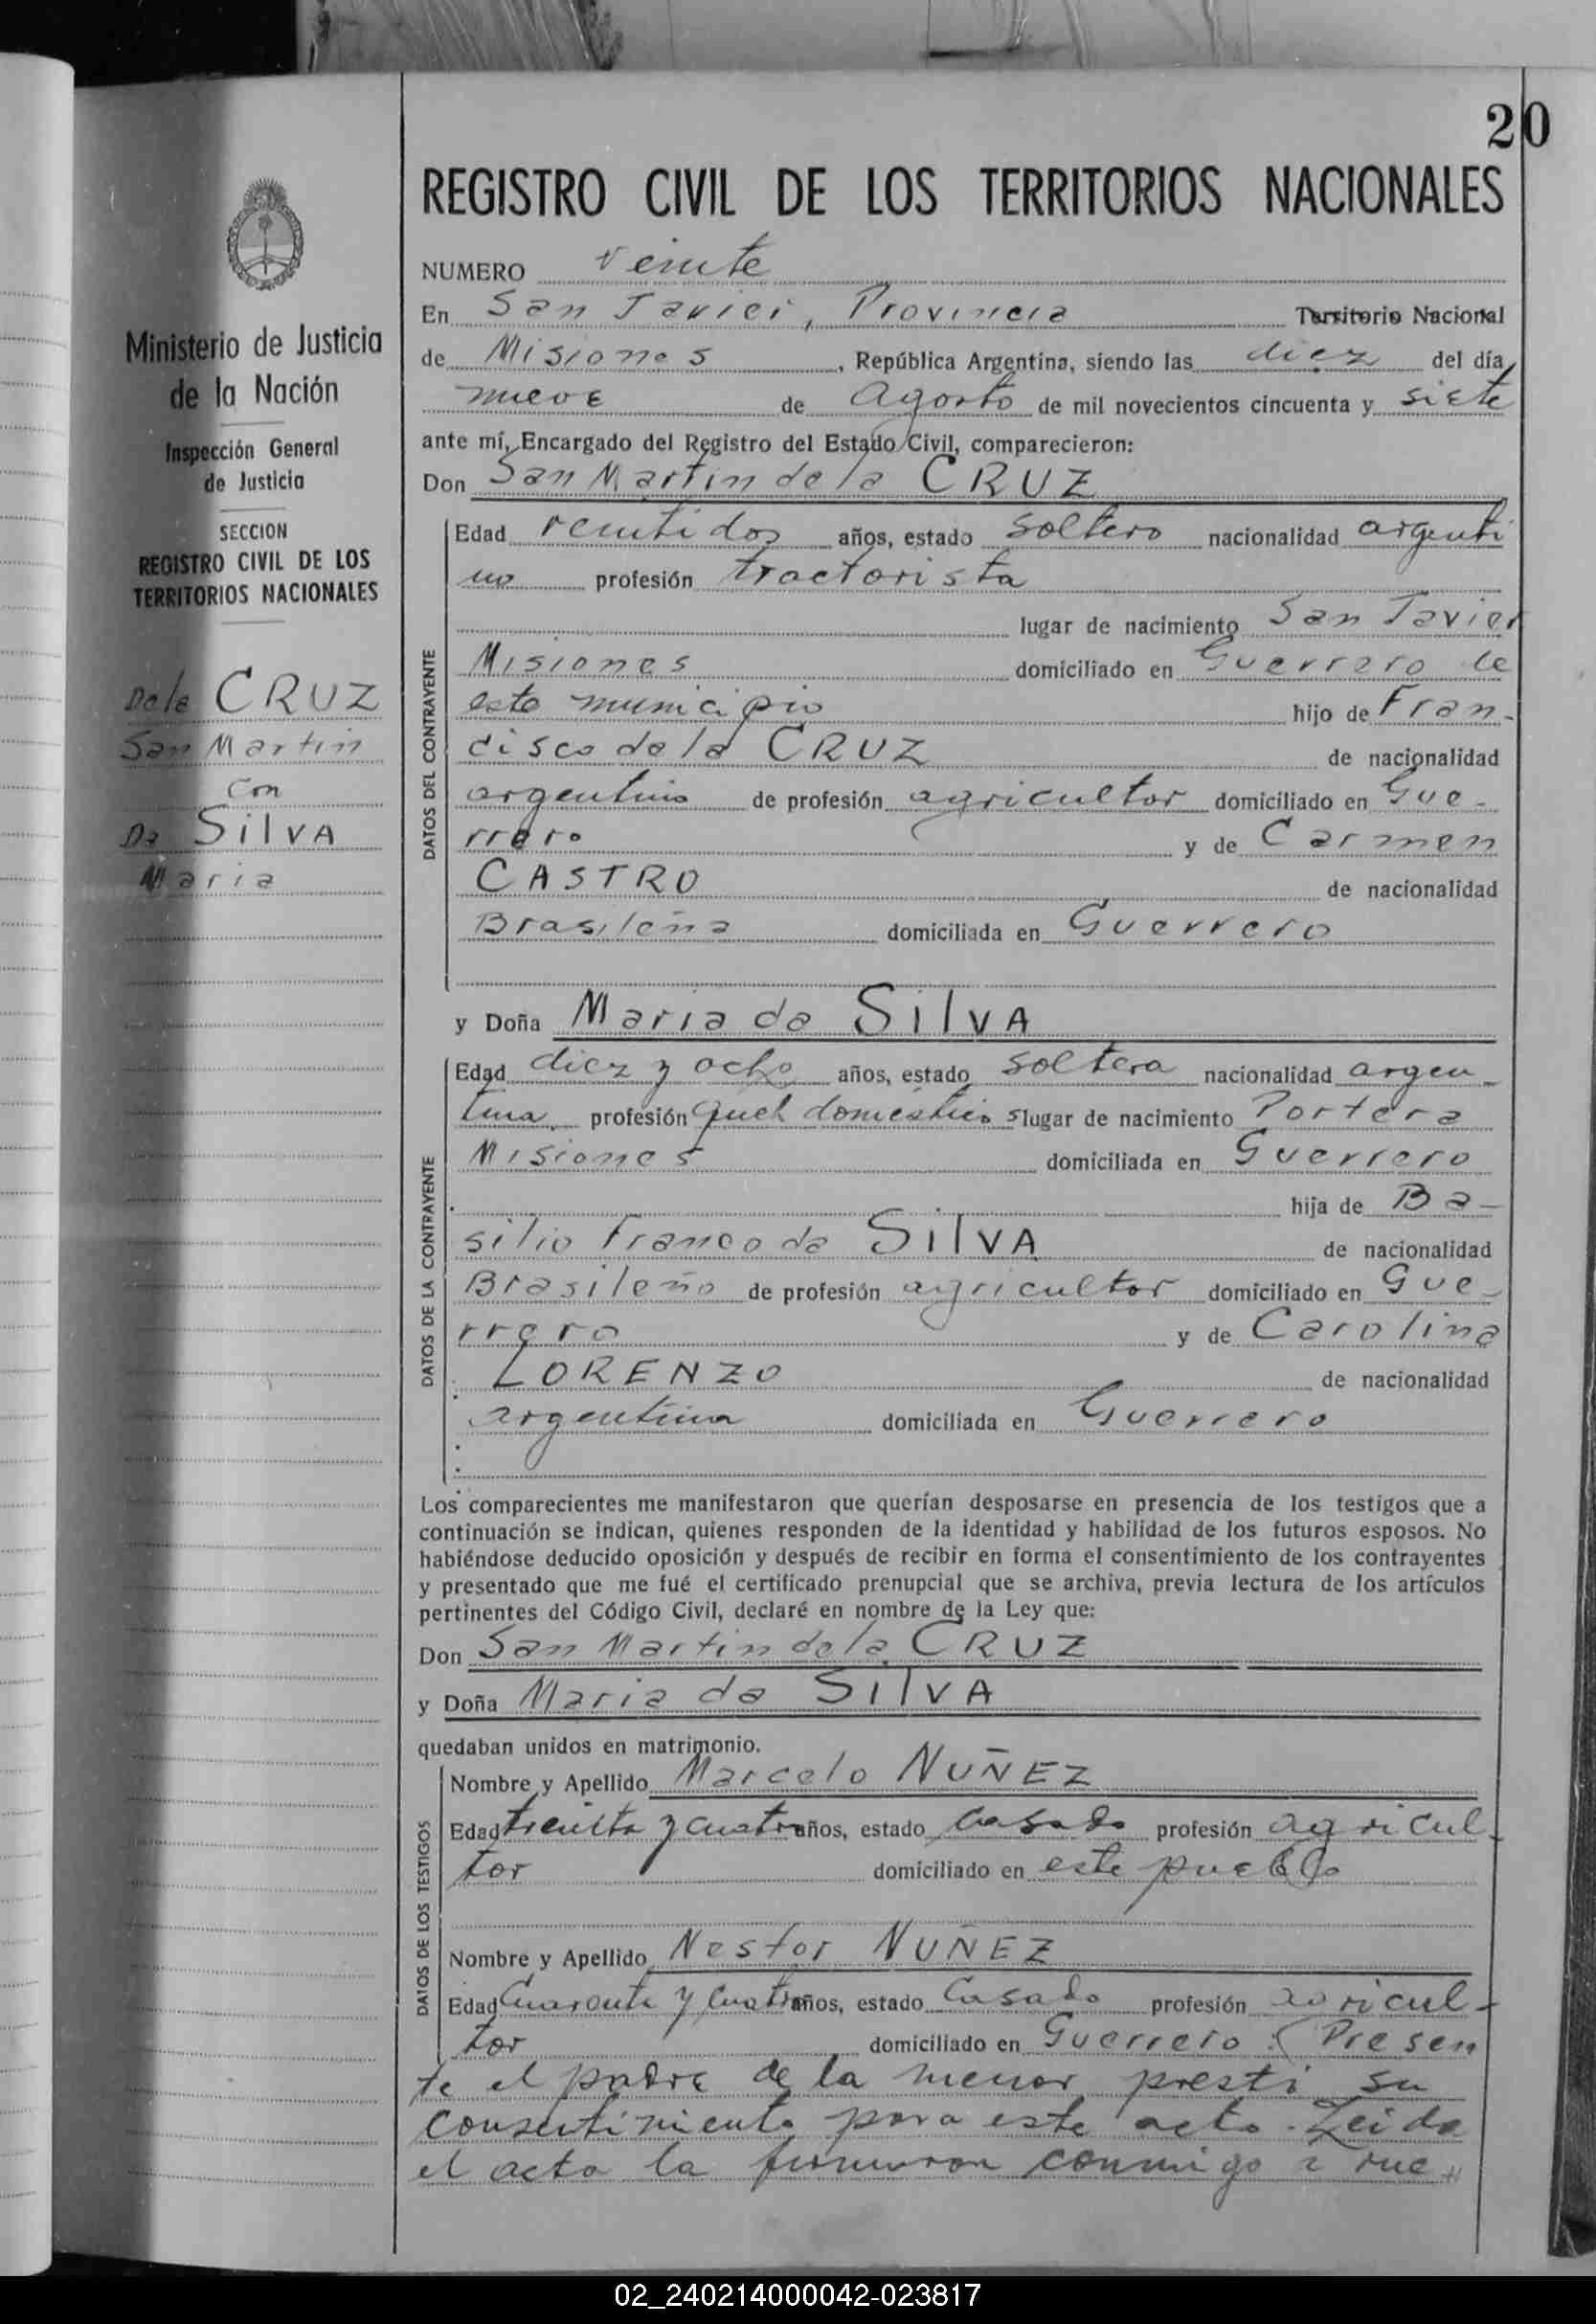 20
REGISTRO CIVIL DE LOS TERRITORIOS NACIONALES
NUMERO veinte
En San Javier, Provincia Territorio Nacional
de Misiones, República Argentina, siendo las diez del día
nueve de Agosto de mil novecientos cincuenta y siete
ante mí, Encargado del Registro del Estado Civil, comparecieron:
Don San Martin de la CRUZ
Ministerio de Justicia
de la Nación
Inspección General
de Justicia
SECCION
REGISTRO CIVIL DE LOS
TERRITORIOS NACIONALES
De la CRUZ
San Martin
con
Da SilVA
Maria
DATOS DEL CONTRAYENTE
Edad veintidos años, estado soltero nacionalidad argenti
no profesión tractorista
lugar de nacimiento San Javier
Misiones domiciliado en Guerrero de
este municipio hijo de Fran-
cisco de la CRUZ de nacionalidad
argentino de profesión agricultor domiciliado en Gue-
rrero y de Carmen
CASTRO de nacionalidad
Brasileña domiciliada en Guerrero
y Doña Maria da SilVA
DATOS DE LA CONTRAYENTE
Edad diez y ocho años, estado soltera nacionalidad argen-
tina profesión queh domésticos lugar de nacimiento Portera
Misiones domiciliada en Guerrero
hija de Ba-
silio Franco da SilVA de nacionalidad
Brasileño de profesión agricultor domiciliado en Gue-
rrero y de Carolina
LORENZO de nacionalidad
argentina domiciliada en Guerrero
Los comparecientes me manifestaron que querían desposarse en presencia de los testigos que a
continuación se indican, quienes responden de la identidad y habilidad de los futuros esposos. No
habiéndose deducido oposición y después de recibir en forma el consentimiento de los contrayentes
y presentado que me fué el certificado prenupcial que se archiva, previa lectura de los artículos
pertinentes del Código Civil, declaré en nombre de la Ley que:
Don San Martin de la CRUZ
y Doña Maria da SilVA
quedaban unidos en matrimonio.
DATOS DE LOS TESTIGOS
Nombre y Apellido Marcelo NUÑEZ
Edad treinta y cuatro años, estado casado profesión agricul-
tor domiciliado en este pueblo
Nombre y Apellido Nestor NUÑEZ
Edad Cuarenta y cuatro años, estado Casado profesión agricul-
tor domiciliado en Guerrero: Presen
te el padre de la menor prestó su
consentimiento para este acto. Leida
el acta la firmaron conmigo a rue
02_240214000042-023817